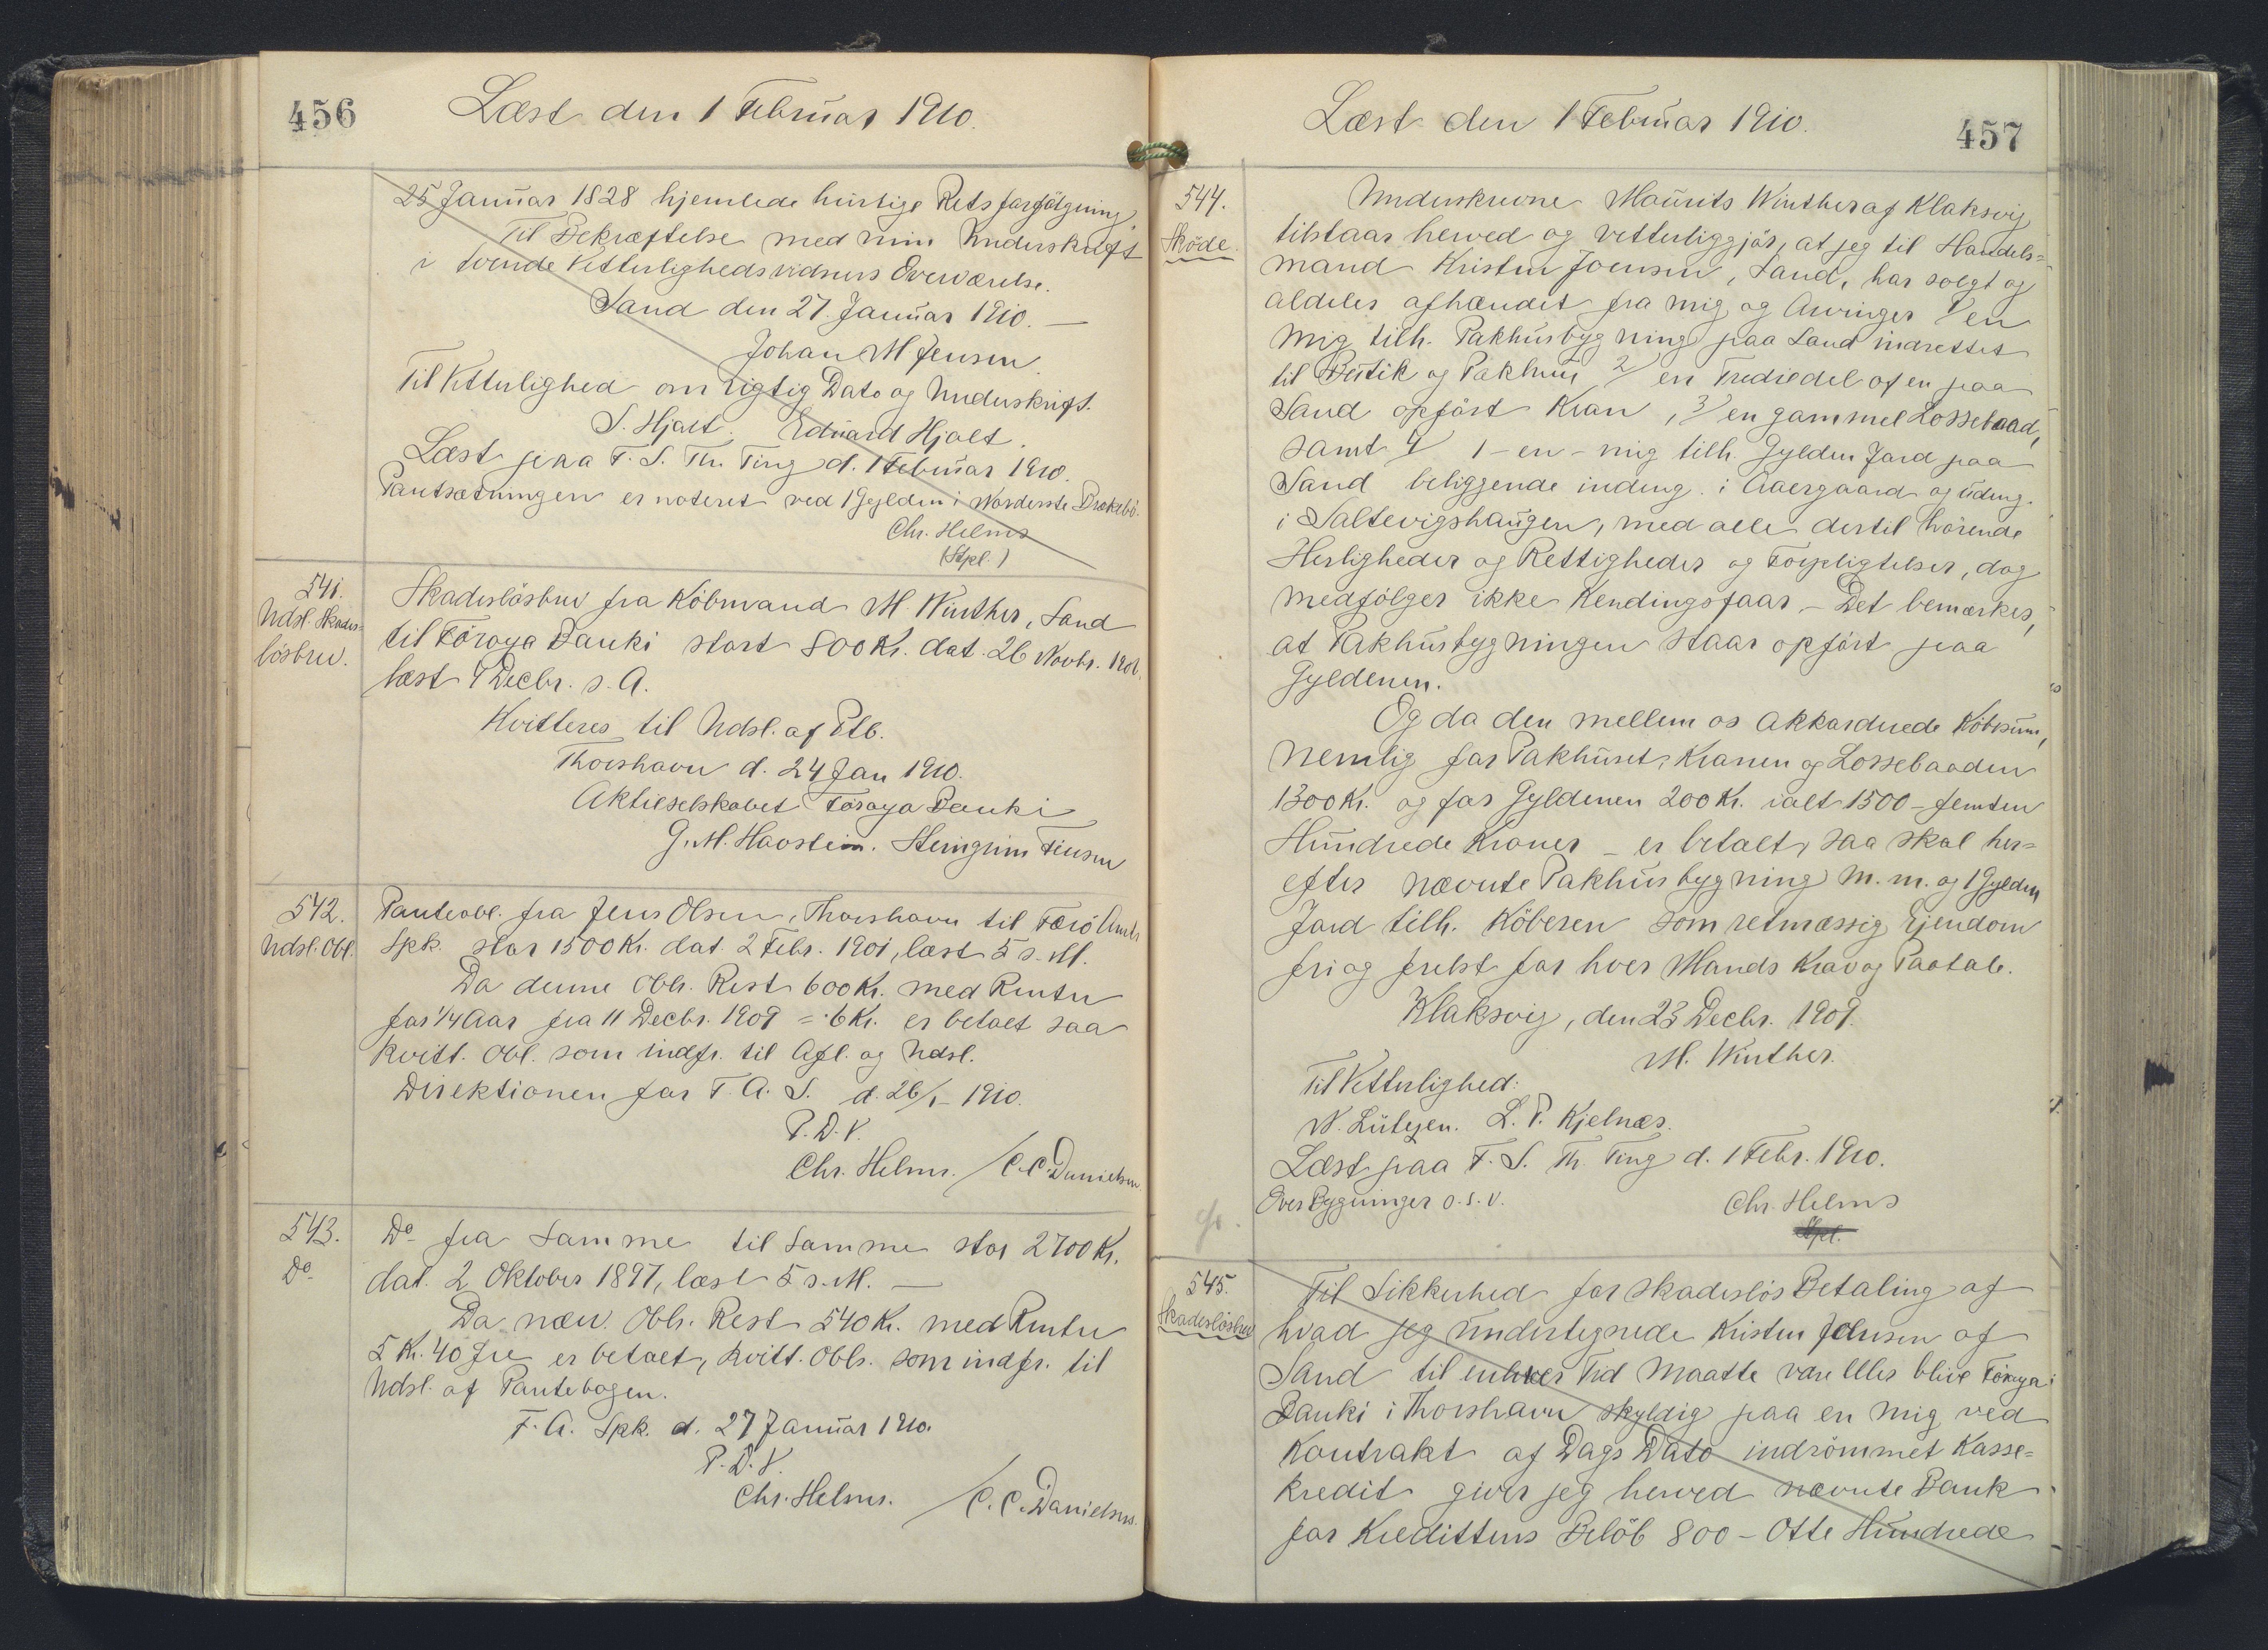 456
Læst den 1 Februar 1910.
25 Januar 1828 hjemlede hurtige Retsforfølgning
Til Bekræftelse med min Underskrift
i tvende Vitterlighedsvidners Overværelse.
Sand den 27. Januar 1910. —
Johan M Jensen.
Til Vitterlighed om rigtig Dato og Underskrift.
S. Hjalt. Eduard Hjalt.
Læst paa F. S. Th. Ting d. 1 Februar 1910.
Pantsætningen er noteret ved 1 Gylden i Norderste
Chr. Helms
(Stpl.)
541.
Udsl. Skades=
løsbrev.
Skadesløsbrev fra Købmand M. Winther, Sand
til Föroya Banki stort 800 Kr. dat. 26 Novbr. 1906.
læst 4 Decbr. s. A.
Kvitteres til Udsl. af Ptb.
Thorshavn d. 24 Jan 1910.
Aktieselskabet Föroya Banki
G. M. Haostein.
542.
Udsl. Obl.
Panteobl. fra Jens Olsen, Thorshavn til Færö Amts
Spk. stor 1500 Kr. dat. 2 Febr. 1901, læst 5 s. M.
Da denne Obls. Rest 600 Kr. med Renter
for 1/4 Aar fra 11 Decbr. 1909 = 6 Kr. er betalt saa
kvitt. Obl. som indfr. til Afl. og Udsl.
Direktionen for F. A. S. d. 26/1 - 1910.
P. D. V.
Chr. Helms. / C. C. Danielsen.
543.
Do
Do fra Samme til Samme stor 2700 Kr.
dat. 2 Oktober 1897, læst 5 s. M. —
Da næv. Obls. Rest 540 Kr. med Renter
5 Kr. 40 Øre er betalt, kvitt. Obls. som indfr. til
Udsl. af Pantebogen.
F. A. Spk. d. 27 Januar 1910.
P. D. V.
Chr. Helms. / C. C. Danielsen.
Læst den 1 Februar 1910.
457
544.
Sköde.
Underskrevne Maurits Winther af Klaksvig
tilstaar herved og vitterliggjör, at jeg til Handels=
mand Kristen Joensen, Sand, har solgt og
aldeles afhændet fra mig og Arvinger 1/ en
mig tilh. Pakhusbygning paa Sand indrettet
til Butik og Pakhus 2/ en Trediedel af en paa
Sand opfört Kran, 3/ en gammel Lossebaad,
samt 4/ 1 - en - mig tilh. Gylden Jord paa
Sand beliggende indeng. i Aaergaard og udeng.
i Saltevigshaugen, med alle dertil hörende
Herligheder og Rettigheder og Forpligtelser, dog
medfölger ikke Kendingsfaar. - Det bemærkes,
at Pakhusbygningen staar opfört paa
Gyldenen.
Og da den mellem os akkorderede Köbesum,
nemlig for Pakhuset, Kranen og Lossebaaden
1300 Kr. og for Gyldenen 200 Kr. ialt 1500 - femten
Hundrede Kroner - er betalt, saa skal her=
efter nævnte Pakhusbygning m. m. og 1 Gylden
Jord tilh. Köberen som retmæssig Ejendom
fri og frelst for hver Mands Krav og Paatale.
Klaksvig, den 23 Decbr. 1909.
M. Winther.
Til Vitterlighed:
N. Lützen. L. P. Kjelnæs.
Læst paa F. S. Th. Ting d. 1 Febr. 1910.
Over Bygninger o. s. v.
Chr. Helms
Stpl.
545.
Skadeslösbrev
Til Sikkerhed for skadeslös Betaling af
hvad jeg undertegnede Kristen Joensen af
Sand til enhver Tid maatte være eller blive Föroya
Banki i Thorshavn skyldig paa en mig ved
Kontrakt af Dags Dato indrömmet Kasse=
kredit giver jeg herved nævnte Bank
for Kredittens Belöb 800 - Otte Hundrede